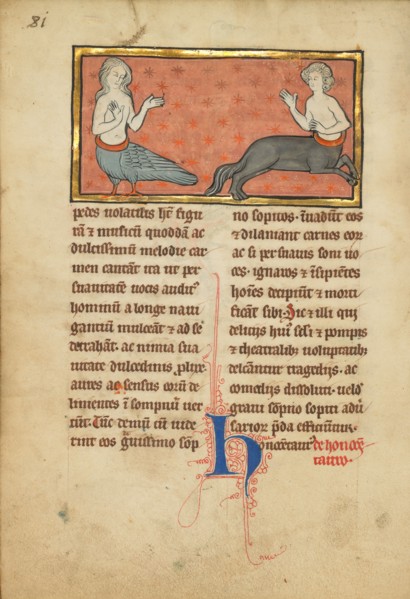 81
pedes uolatilis hñt figu
rã ⁊ musicũ quoddã ac
dulcissimũ melodie car
men cantãt ita ut per
suauitatẽ uocis auditꝰ
hominũ a longe naui
gantiũ mulceãt ⁊ ad se
detrahãt. ac nimia sua
uitate dulcedinis
aures ac sensus eorũ de
linientes ĩ sompniũ uer
tũt. Tũc demũ cũ uide
rint eos sõp
no sopitos. ĩuadũt eos
⁊ dilaniant carnes eoꝝ
ac si persuauis soni uo
ces. ignaros ⁊ ĩsipiẽtes
hoĩes decipiũt ⁊ morti
ficãt sibi. Sic ⁊ illi qui
delitijs hiꝰ seli ⁊ pompis
⁊ theatralibꝫ uoluptatibꝫ
delectãtur tragedijs. ac
comedijs dissoluti. uelđ
graui sõpno sopiti adũ
sarioꝝ p̃da efficiũtur.
Honocẽtaurꝰ de honocẽ
tauro.